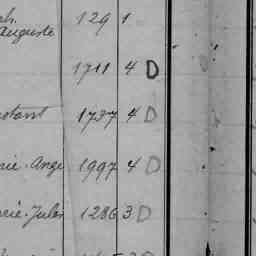 Auguste 129 1
1711 4 D
1737 4 D
rie-Ange 1997 4 D
rie-Jules 1286 3 D